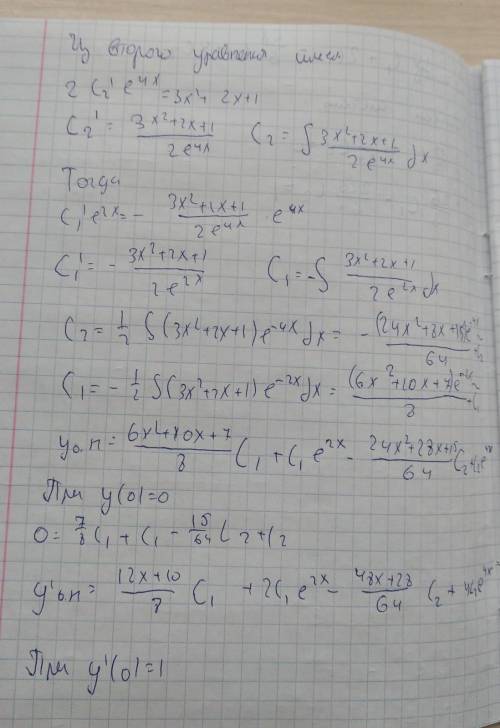 Из второго уравнения имеем
2 C₂' e^{4x} = 3x² + 2x+1
C₂' = (3x²+2x+1)/(2e^{4x})   C₂ = ∫ (3x²+2x+1)/(2e^{4x}) dx
Тогда
C₁' e^{2x} = - (3x²+2x+1)/(2e^{4x}) e^{4x}
C₁' = - (3x²+2x+1)/(2e^{2x})   C₁ = -∫ (3x²+2x+1)/(2e^{2x}) dx
C₂ = 1/2 ∫(3x²+2x+1) e^{-4x} dx = - (24x²+28x+15)e /64
C₁ = - 1/2 ∫(3x²+2x+1) e^{-2x} dx = (6x²+10x+7)e /8
y₀.н = (6x²+10x+7)/8 C₁ + C₁ e^{2x} - (24x²+28x+15)/64 C₂
При y(0)=0
0 = 7/8 C₁ + C₁ - 15/64 C₂ + C₂
y'₀.н = (12x+10)/8 C₁ + 2C₁e^{2x} - (48x+28)/64 C₂ +
При y'(0)=1